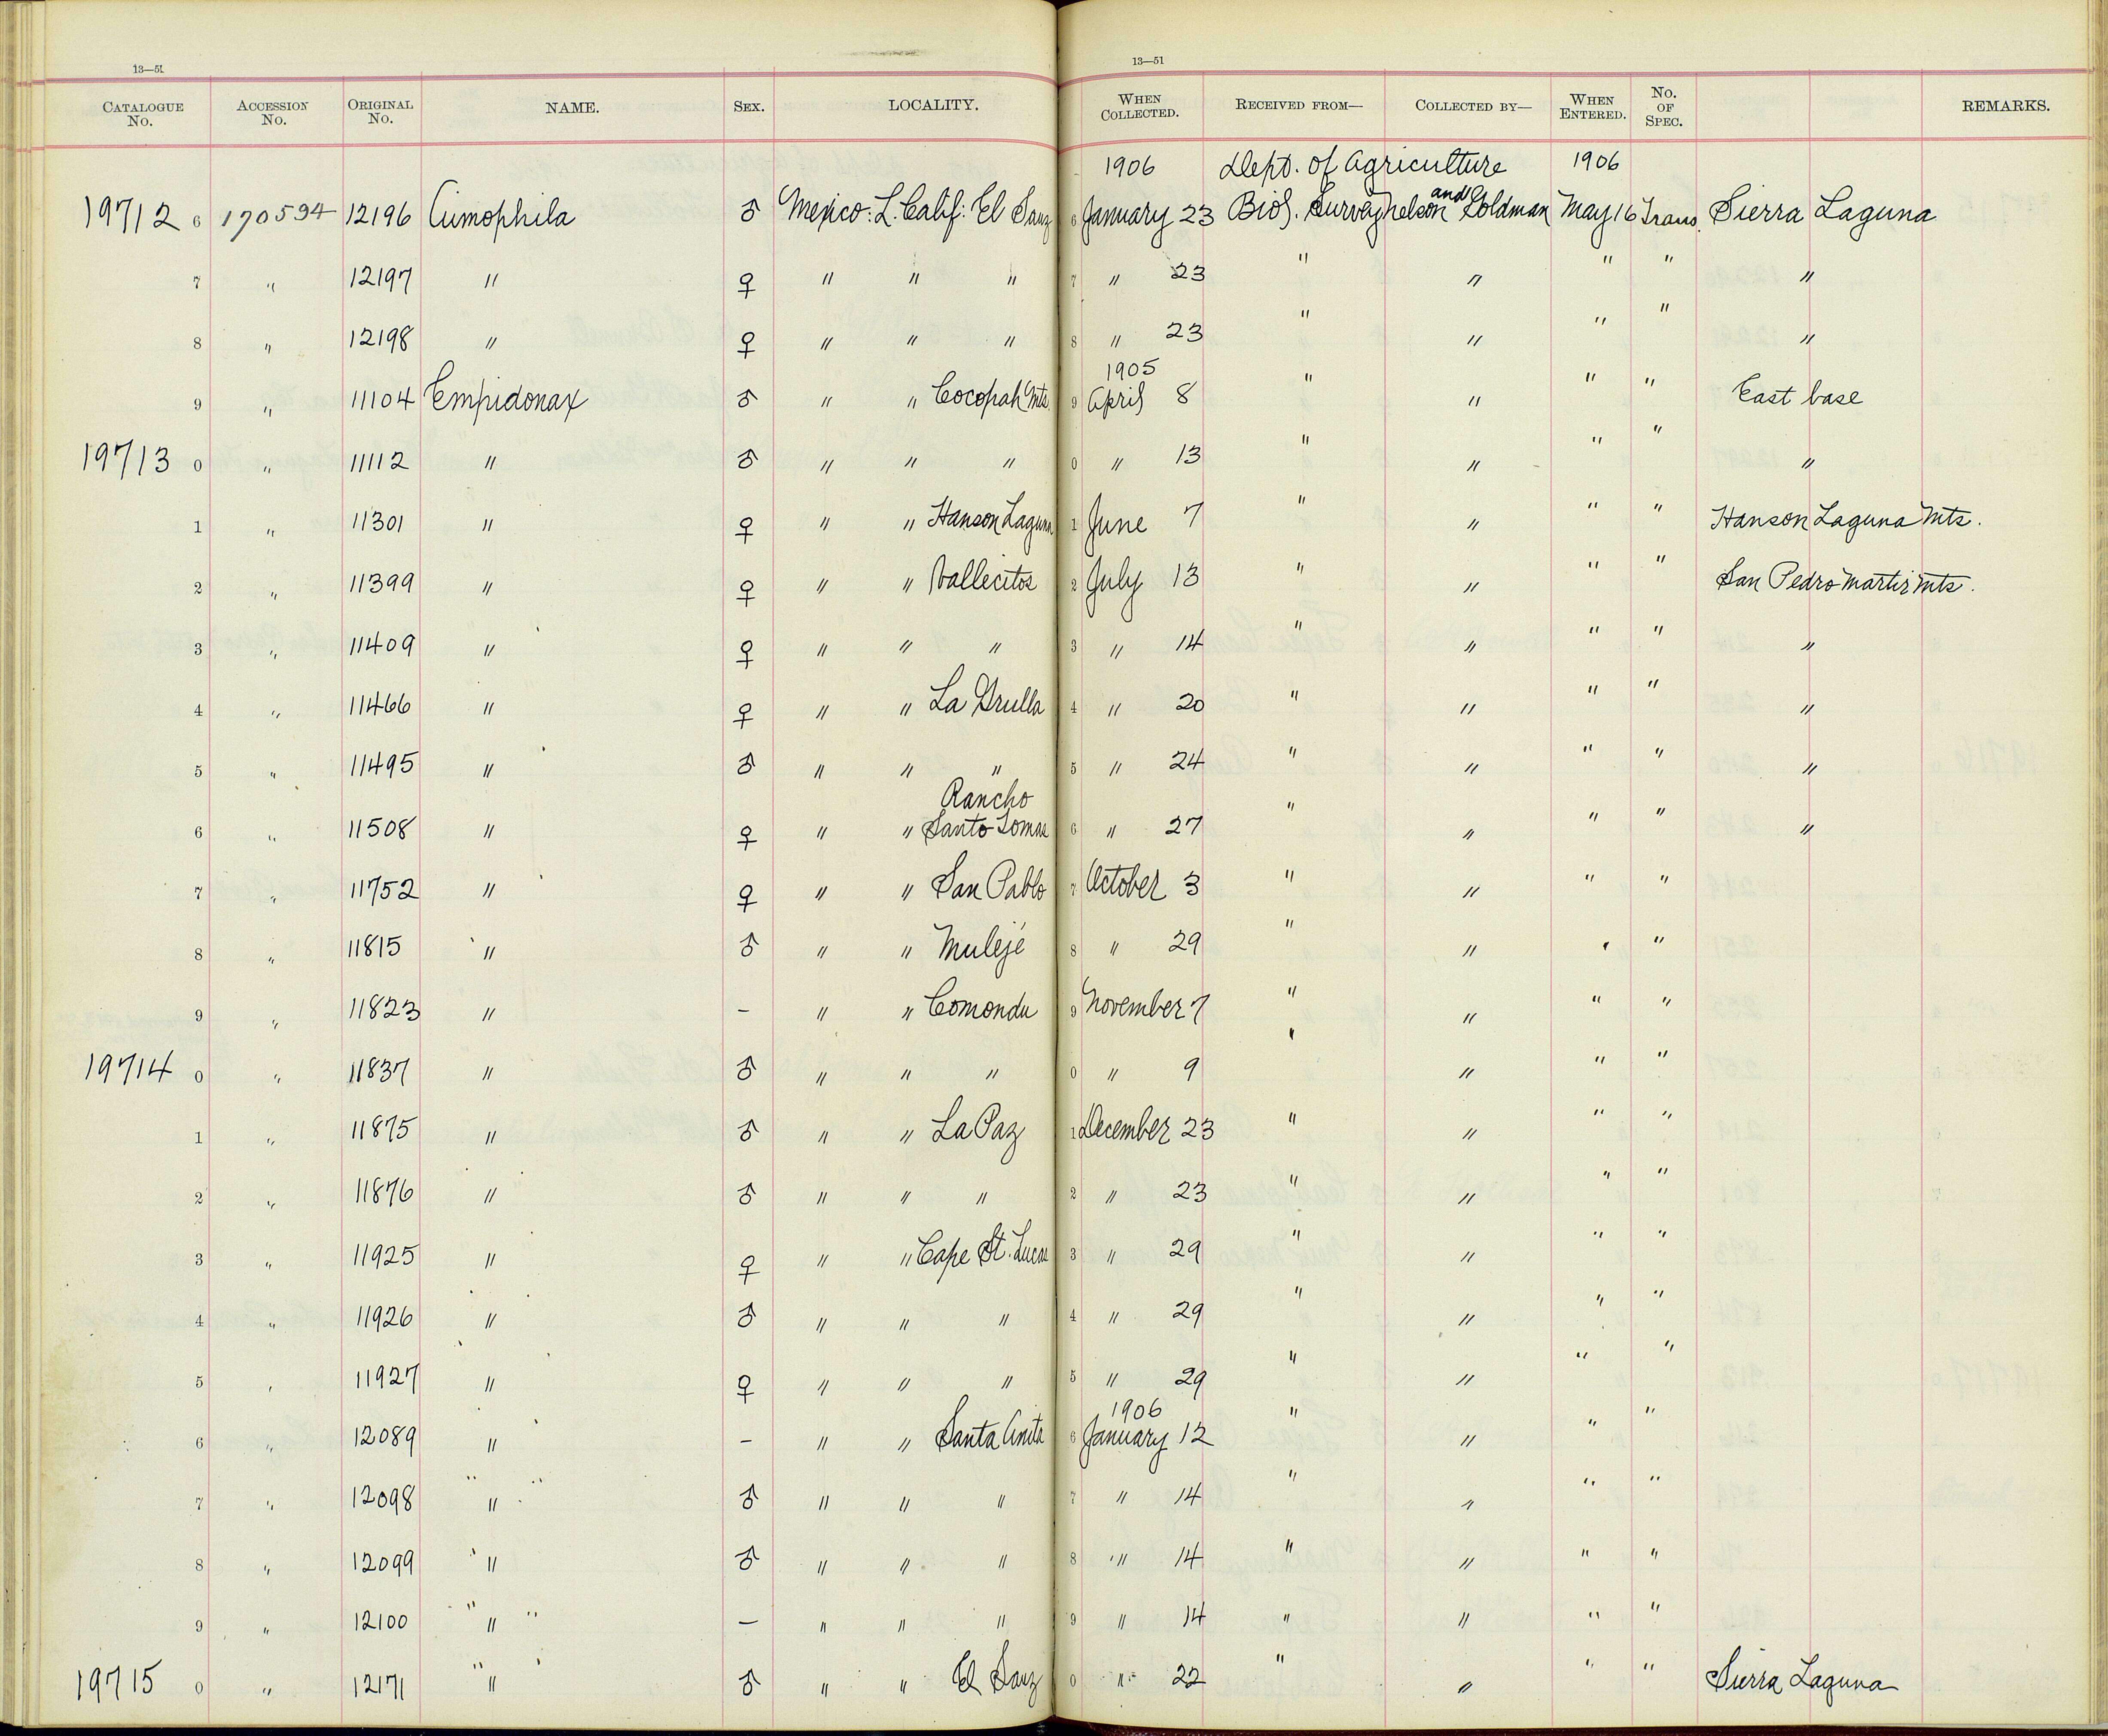 13—51 13—51
CATALOGUE No. ACCESSION No. ORIGINAL No. NAME. SEX. LOCALITY. WHEN COLLECTED. RECEIVED FROM— COLLECTED BY— WHEN ENTERED. No. OF SPEC. REMARKS.
1906 Dept. of Agriculture 1906
19712 6 170594 12196 Aimophila ♂ Mexico: L. Calif: El Sauz 6 January 23 Biol. Survey Nelson and Goldman May 16 Trans. Sierra Laguna
7 " 12197 " ♀ " " " 7 " 23 " " " " "
8 " 12198 " ♀ " " " 8 " 23 " " " " "
1905
9 " 11104 Empidonax ♂ " " Cocopah Mts. 9 April 8 " " " " East base
19713 0 " 11112 " ♂ " " " 0 " 13 " " " " "
1 " 11301 " ♀ " " Hanson Laguna 1 June 7 " " " " Hanson Laguna Mts.
2 " 11399 " ♀ " " Vallecitos 2 July 13 " " " " San Pedro Martir Mts.
3 " 11409 " ♀ " " " 3 " 14 " " " " "
4 " 11466 " ♀ " " La Grulla 4 " 20 " " " " "
5 " 11495 " ♂ " " " 5 " 24 " " " " "
Rancho
6 " 11508 " ♀ " " Santo Tomas 6 " 27 " " " " "
7 " 11752 " ♀ " " San Pablo 7 October 3 " " " "
8 " 11815 " ♂ " " Mulejé 8 " 29 " " " "
9 " 11823 " – " " Comondu 9 November 7 " " " "
19714 0 " 11837 " ♂ " " " 0 " 9 " " " "
1 " 11875 " ♂ " " La Paz 1 December 23 " " " "
2 " 11876 " ♂ " " " 2 " 23 " " " "
3 " 11925 " ♀ " " Cape St. Lucas 3 " 29 " " " "
4 " 11926 " ♂ " " " 4 " 29 " " " "
5 " 11927 " ♀ " " " 5 " 29 " " " "
1906
6 " 12089 " – " " Santa Anita 6 January 12 " " " "
7 " 12098 " ♂ " " " 7 " 14 " " " "
8 " 12099 " ♂ " " " 8 " 14 " " " "
9 " 12100 " – " " " 9 " 14 " " " "
19715 0 " 12171 " ♂ " " El Sauz 0 " 22 " " " " Sierra Laguna